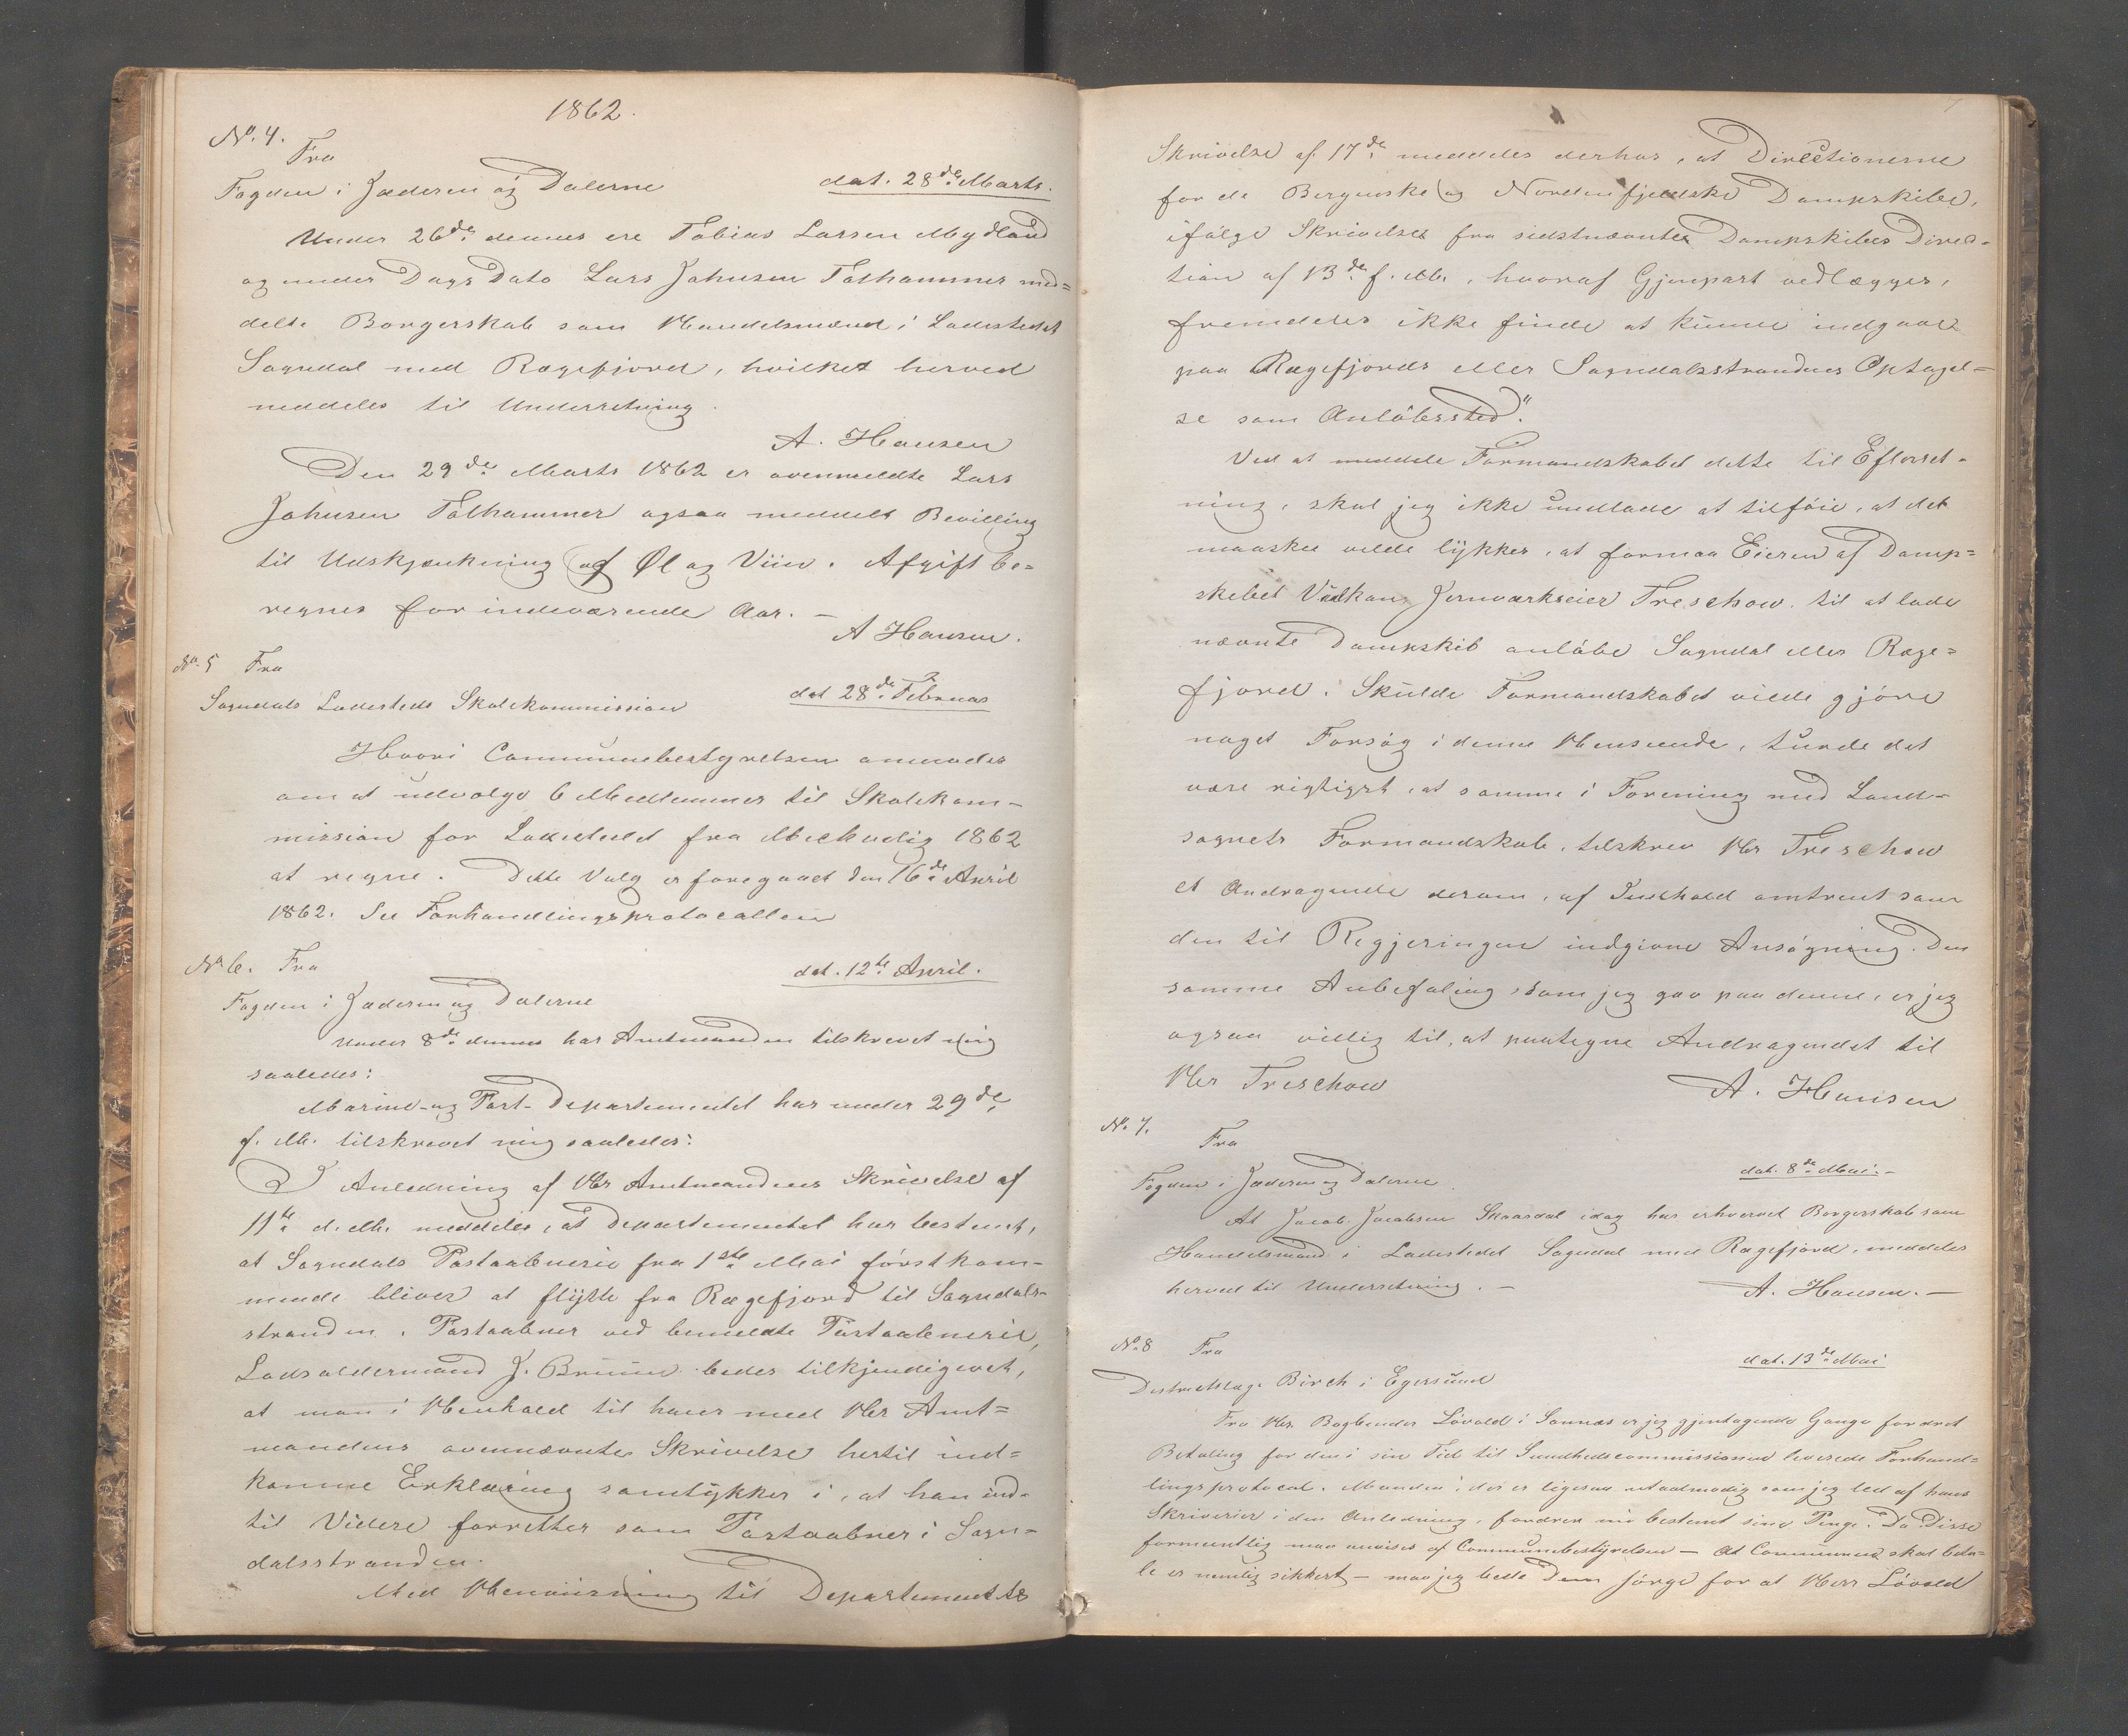 1862.
No. 4.
Fra
Fogden i Jæderen og Dalerne
dat. 28de Marts.
Under 26de dennes ere Tobias Larsen Mydland
og under Dags Dato Lars Johnsen Tothammer med=
delte Borgerskab som Handelsmænd i Ladestedet
Sogndal med Rægefjord, hvilket herved
meddeles til Underretning.
A. Hansen
Den 29de Marts 1862 er ovenmeldte Lars
Johnsen Tothammer ogsaa meddelt Bevilling
til Udskjænkning af Øl og Viin. Afgift be=
regnes for indeværende Aar. —
A Hansen.
No. 5 Fra
Sogndals Ladesteds Skolekommission
dat 28de Februar
Hvori Communebestyrelsen anmodes
om at udvælge 6 Medlemmer til Skolekom-
mission for Ladestedet fra Michaelig 1862
at regne. Dette Valg er foregaaet den 16de April
1862. See Forhandlingsprotocollen
No. 6. Fra
dat. 12te April.
Fogden i Jæderen og Dalerne
Under 8de dennes har Amtmanden tilskrevet mig
saaledes:
Marine- og Post-Departementet har under 29de
f. M. tilskrevet mig saaledes:
I Anledning af Hr Amtmandens Skrivelse af
11te d. M. meddeles, at Departementet har bestemt,
at Sogndals Postaabneri fra 1ste Mai førstkom-
mende bliver at flytte fra Rægefjord til Sogndals-
stranden. Postaabner ved bemeldte Postaabneri,
Lodsoldermand J. Bruun bedes tilkjendegivet,
at man i Henhold til hans med Hr Amt=
mandens ovennævnte Skrivelse hertil ind=
komne Erklæring samtykker i, at han ind-
til Videre forretter som Postaabner i Sogn-
dalsstranden.
Med Henviisning til Departementets
Skrivelse af 17de meddeles derhos, at Directionerne
for de Bergenske og Nordenfjeldske Dampskibe,
ifølge Skrivelse fra sidstnævnte Dampskibes Direc-
tion af 13de f. M., hvoraf Gjenpart vedlægges,
fremdeles ikke finde at kunne indgaae
paa Rægefjords eller Sogndalsstrandens Optagel=
se som Anløbssted."
Ved at meddele Formandskabet dette til Efterret-
ning, skal jeg ikke undlade at tilføie, at det
maaskee vilde lykkes, at formaa Eieren af Damp=
skibet Vulkan Jernværkseier Treschow til at lade
nævnte Dampskib anløbe Sogndal eller Ræge=
fjord. Skulde Formandskabet vilde gjøre
noget Forsøg i denne Henseende, turde det
være rigtigst, at samme i Forening med Land-
sognets Formandskab, tilskrev Hr Treschow
et Andragende derom, af Indhold omtrent som
den til Regjeringen indgivne Ansøgning. Den
samme Anbefaling, som jeg gav paa denne, er jeg
ogsaa villig til, at paategne Andragendet til
Hr Treschow
A. Hansen
No. 7.
Fra
Fogden i Jæderen og Dalerne
dat. 8de Mai. -
At Jacob Jacobsen Skaardal idag har erhvervet Borgerskab som
Handelsmand i Ladestedet Sogndal med Rægefjord, meddeles
herved til Underretning. —
A. Hansen. —
No. 8 Fra
dat. 13de Mai
Districtslæge Birch i Egersund
Fra Hr. Bogbinder Løvold i Sannæs er jeg gjentagende Gange fordret
Betaling for den i sin Tid til Sundhedscommissionen leverede Forhand=
lingsprotocol. Manden, der er ligesaa utaalmodig som jeg led af hans
Skriverier i den Anledning, fordrer nu bestemt sine Penge. Da Disse
formentlig maa anvises af Communebestyrelsen — at Communen skal beta=
le er nemlig sikkert — maa jeg bede Dem sørge for at Herr Løvold